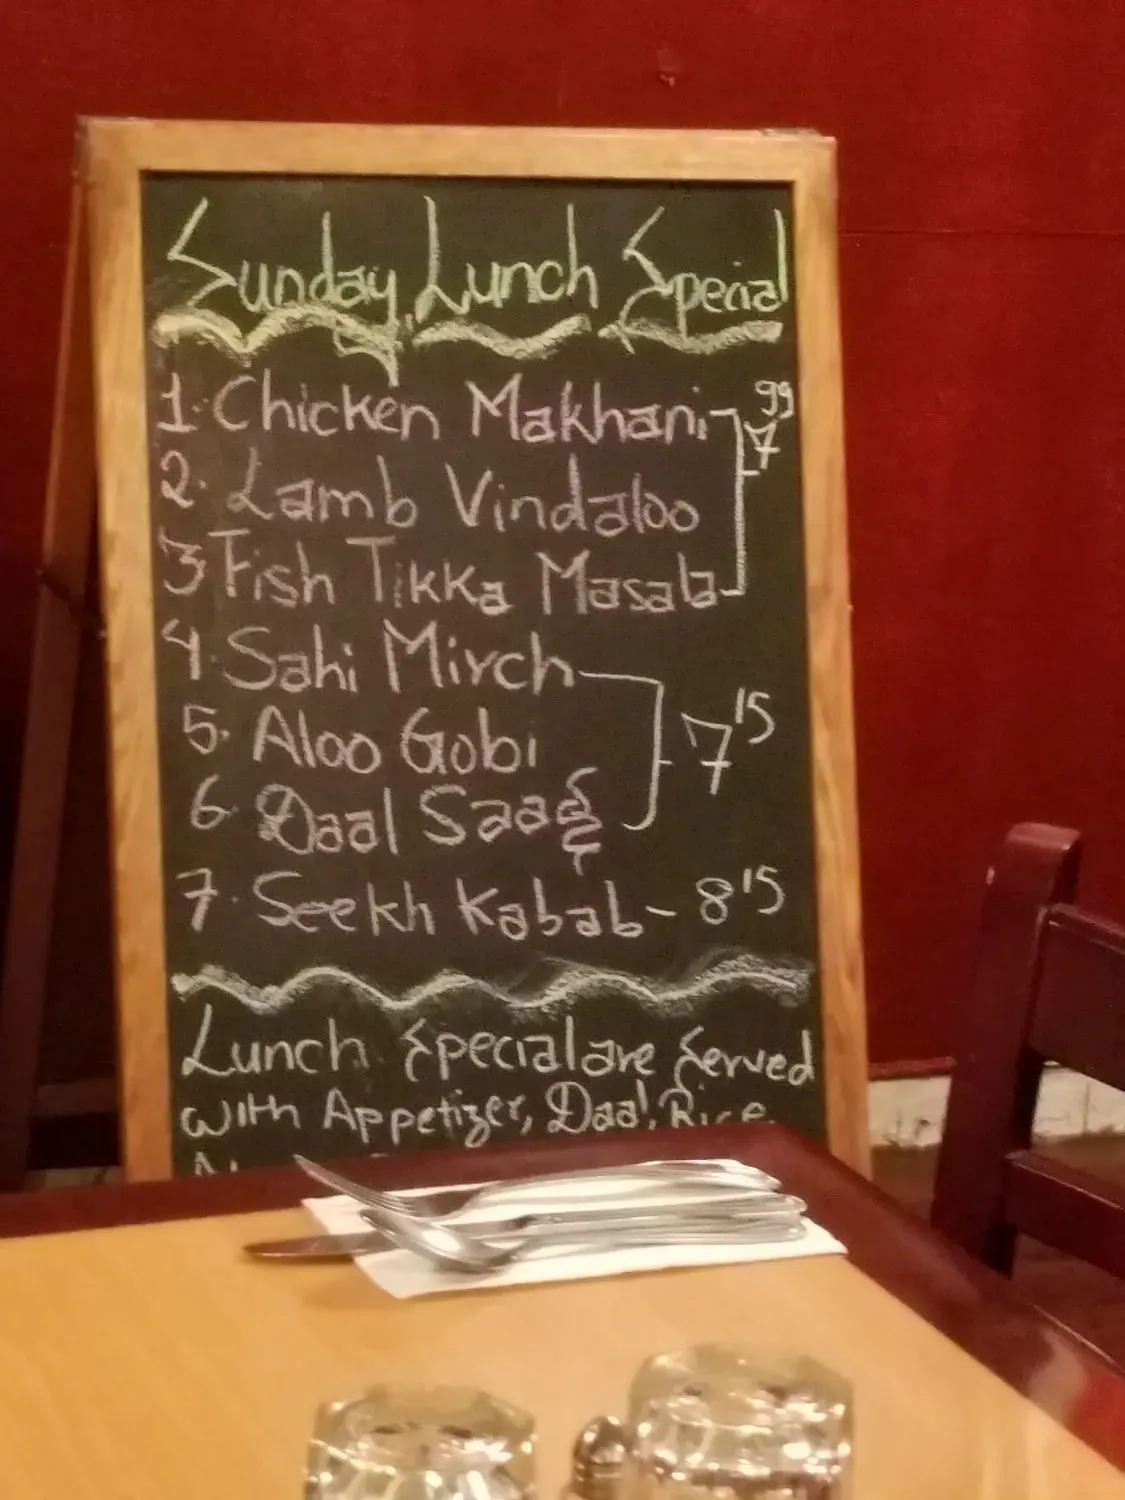 Sunday Lunch Special
1. Chicken Makhani
2. Lamb Vindaloo
3. Fish Tikka Masala
7 99
4. Sahi Mirch
5. Aloo Gobi
6. Daal Saag
7 15
7. Seekh Kabab - 8 15
Lunch Special are Served
with Appetizer, Daal, Rice,